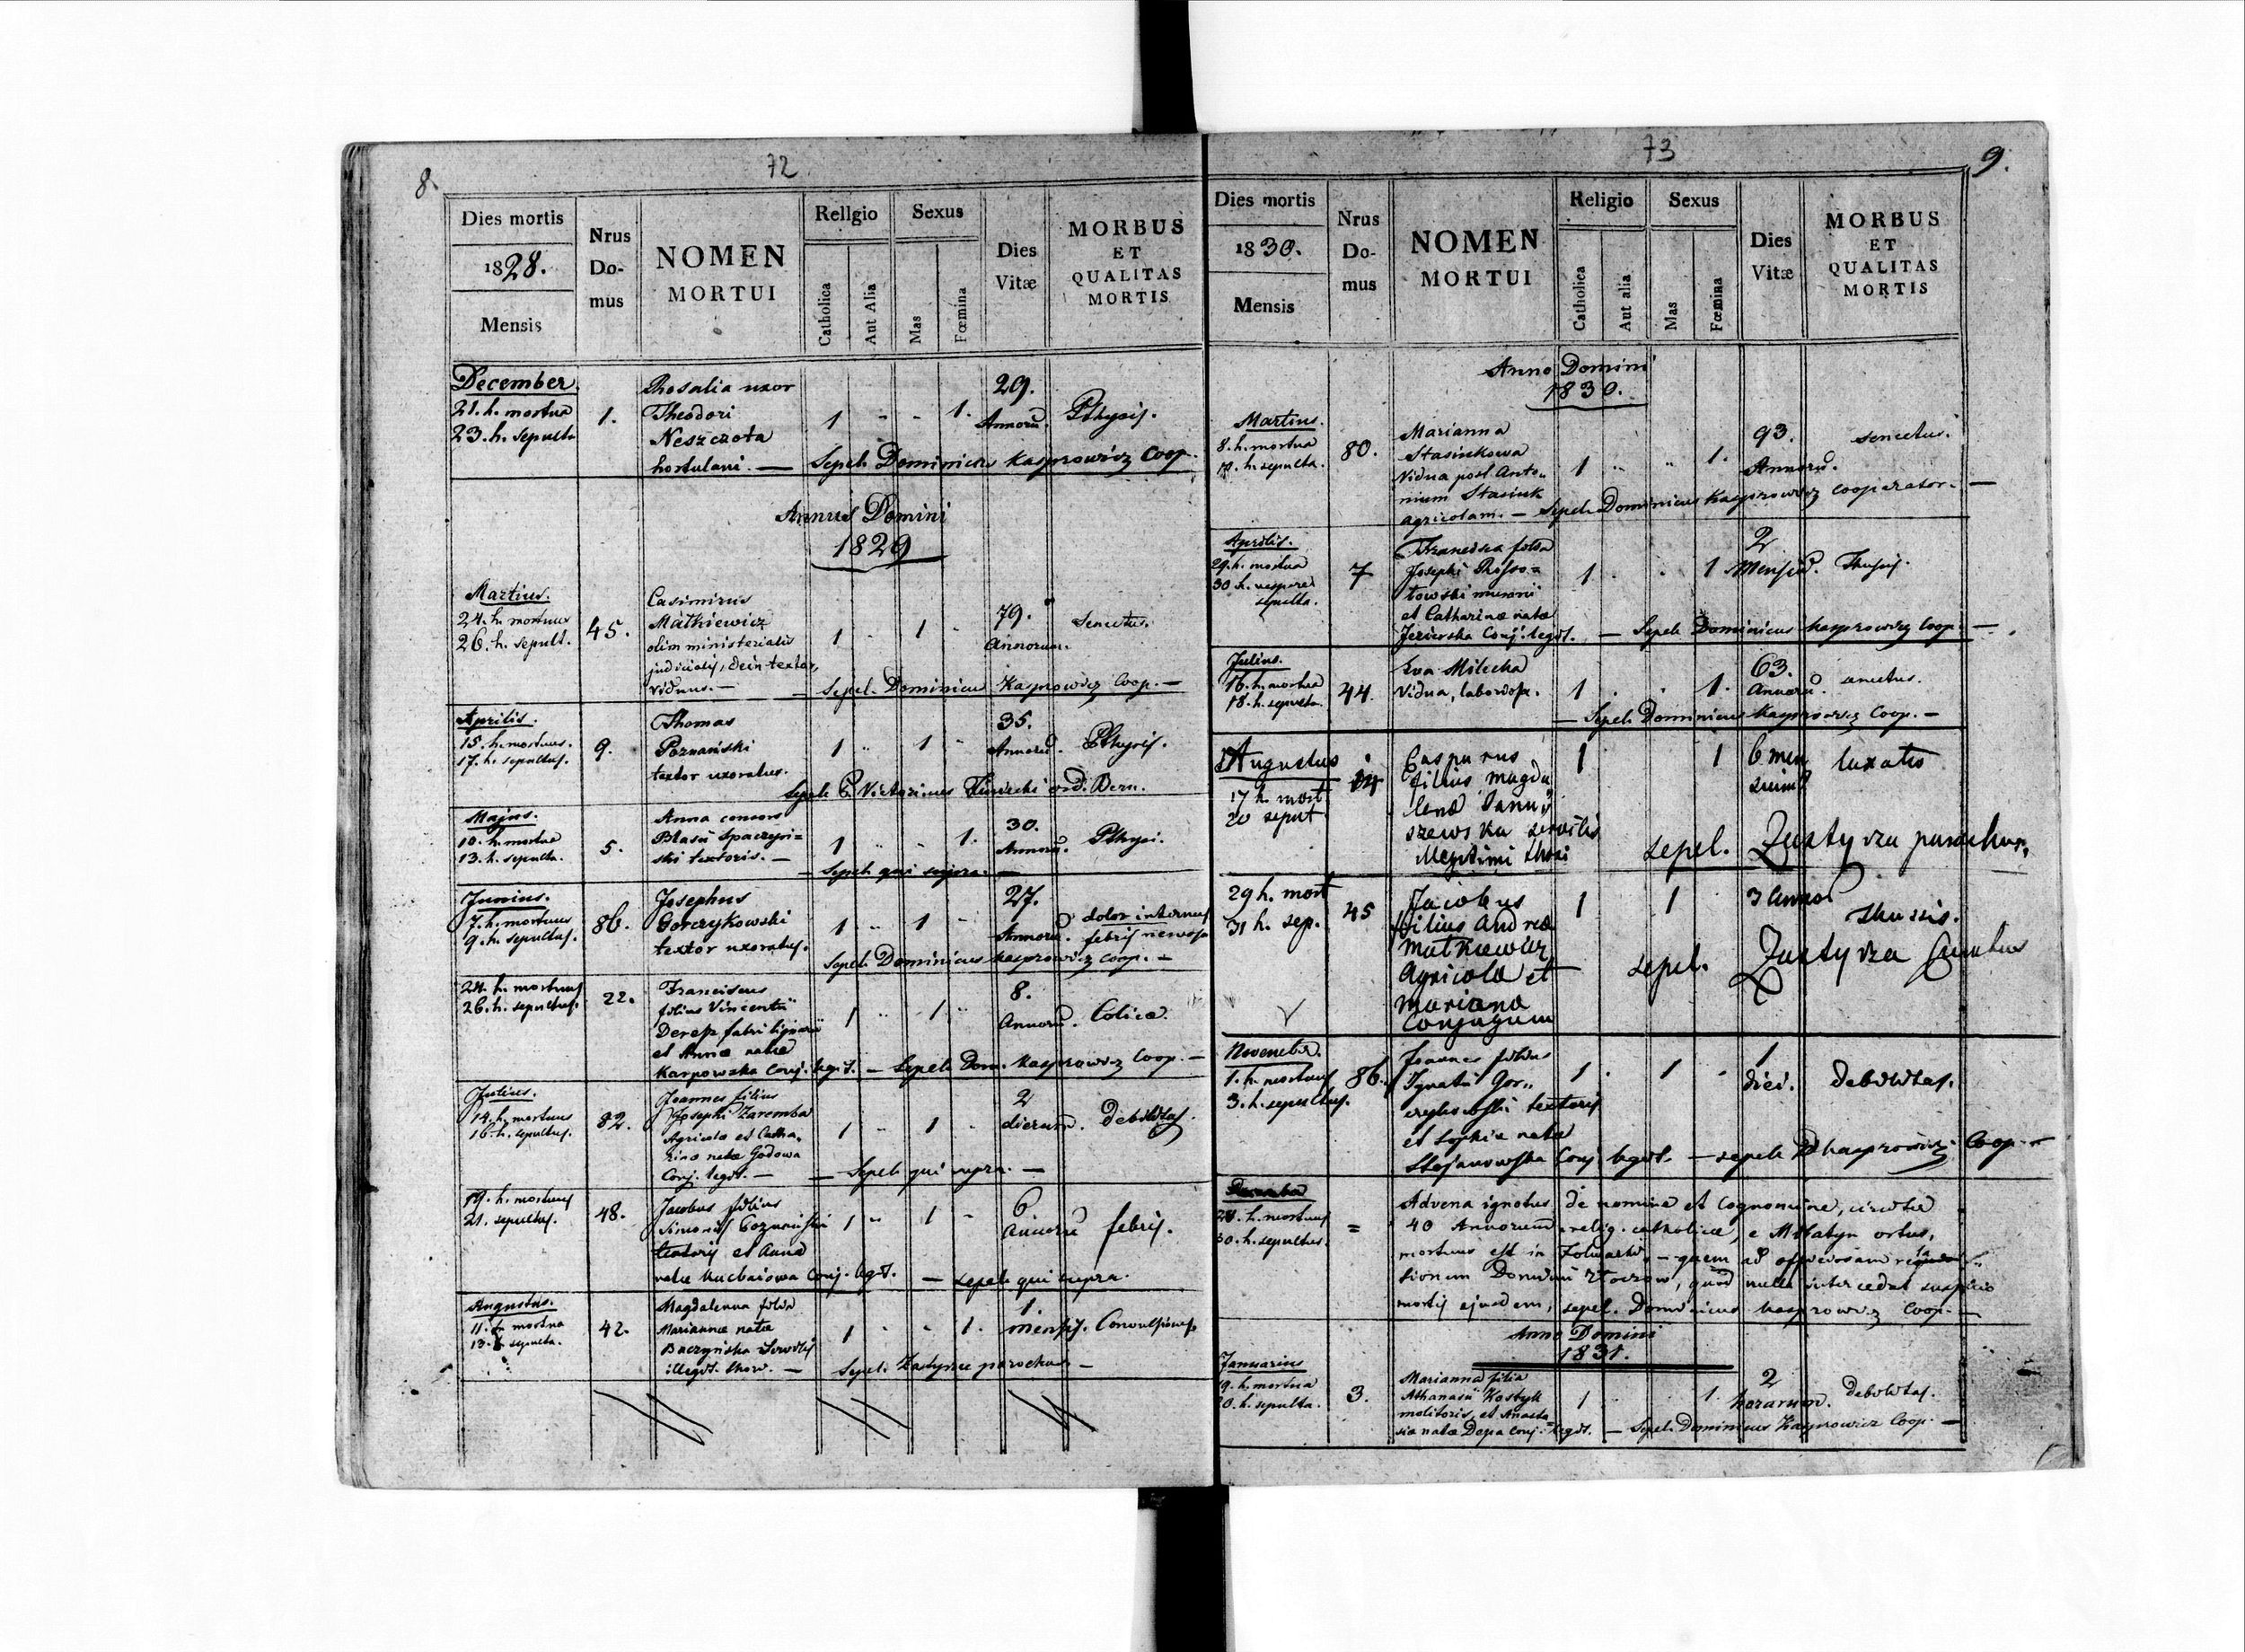 8.
72
Dies mortis
1828.
Mensis
Nrus
Do-
mus
NOMEN
MORTUI
Religio
Catholica
Aut Alia
Sexus
Mas
Fœmina
Dies
Vitæ
MORBUS
ET
QUALITAS
MORTIS
December.
21. h. mortua
23. h. sepulta
1.
Rosalia uxor
Theodori
Neszczota
hortulani. —
1 - - 1.
29.
Annorū.
Pthysis.
Sepel. Dominicus Kasprowicz Coop.
Annus Domini
1829
Martius.
24. h. mortuus
26. h. sepult.
45.
Casimirus
Matkiewicz
olim ministerialis
judicialis, dein textor,
viduus. —
1 - 1 -
79.
Annorum.
Senectus.
— Sepel. Dominicus Kasprowicz Coop. —
Aprilis.
15. h. mortuus.
17. h. sepultus.
9.
Thomas
Poznański
textor uxoratus.
1 - 1 -
35.
Annorū.
Pthysis.
Sepel. P. Victorinus ord. Bern.
Majus.
10. h. mortua
13. h. sepulta.
5.
Anna consors
Blasii Spaczyń=
ski textoris. —
1 - - 1.
30.
Annorū.
Pthysi.
— Sepel. qui supra. —
Junius.
7. h. mortuus
9. h. sepultus.
86.
Josephus
Gorczykowski
textor uxoratus.
1 - 1 -
27.
Annorū.
dolor internus
febris nervosa
Sepel. Dominicus Kasprowicz Coop. —
24. h. mortuus
26. h. sepultus.
22.
Franciscus
filius Vincentii
Deresz fabri lignarii
et Annæ natæ
Karpowska Conj. legit.
1 - 1 -
8.
Annorū.
Colica.
— Sepel. Dom. Kasprowicz Coop. —
Julius.
14. h. mortuus
16. h. sepultus.
82.
Joannes filius
Josephi Zaremba
Agricolæ et Catha-
rinæ natæ Godowa
Conj. legit. —
1 - 1 -
2
dierum.
debilitas.
— Sepel. qui supra. —
19. h. mortuus
21. sepultus.
48.
Jacobus filius
Simonis Poznański
textoris et Annæ
natæ Kucbaiowa Conj. legit.
1 - 1 -
6
Annorū
febris.
— sepel. qui supra.
Augustus.
11. h. mortua
13. h. sepulta.
42.
Magdalenna filia
Mariannæ natæ
Baczyńska Servilis
illegit. thori. —
1 - - 1.
1.
mensis.
Convulsiones
Sepel. Zastyrza parochus —
73
9.
Dies mortis
1830.
Mensis
Nrus
Do-
mus
NOMEN
MORTUI
Religio
Catholica
Aut alia
Sexus
Mas
Fœmina
Dies
Vitæ
MORBUS
ET
QUALITAS
MORTIS
Anno Domini
1830.
Martius.
8. h. mortua
h. sepulta.
80.
Marianna
Stasiukowa
Vidua post Anto-
nium Stasiuk
agricolam. —
1 - - 1.
93.
Annorū.
senectus.
Sepel. Dominicus Kasprowicz Cooperator. —
Aprilis.
29. h. mortua
30 h. vespere
sepulta.
7
Francisca filia
Josephi Rosso=
towski murarii
et Catharinæ natæ
Jezierska Conj. legit.
1 - - 1
2
Mensiū.
Thusis.
— Sepel. Dominicus Kasprowicz Coop. —
Julius.
16. h. mortua
18. h. sepulta.
44.
Eva Milecka
Vidua, laboriosa.
1 - - 1.
63.
Annorū.
senectus.
— Sepel. Dominicus Kasprowicz Coop. —
Augustus
17 h. mort
20 sepult
14
Casparus
filius Magda
lenæ Janu„
szewska servilis
illegitimi thori
1 1
6 men
sium
luxatio
sepel. Zastyrza parochus,
29 h. mort
31 h. sep.
45
Jacobus
filius Andreæ
Matkiewicz
Agricolæ et
Mariana
Conjugum
1 1
3 annor
thussis.
sepel. Zastyrza Curatus
November.
1. h. mortuus
3. h. sepultus.
86.
Joannes filius
Ignatii Gor„
czykowski textoris
et Sophiæ natæ
Stefanowska Conj. legit.
1 - 1 -
1
diei.
debilitas.
— sepel. D Kasprowicz Coop. —
28. h. mortuus
30. h. sepultus.
=
Advena ignotus de nomine et Cognomine, circiter
40 Annorum relig. catholicæ, e Milatyn ortus,
mortuus est in Folwarki, — quem ad
sionem Dominii Złoczow, quod nulla intercedat suspicio
mortis ejusdem, sepel. Dominicus Kasprowicz Coop. —
Anno Domini
1831.
Januarius
19. h. mortua
20. h. sepulta.
3.
Marianna filia
Athanasii Kostyk
molitoris, et Anasta=
siæ natæ Depa Conj. legit.
1 1.
2
horarum.
debilitas.
— Sepel. Dominicus Kasprowicz Coop. —